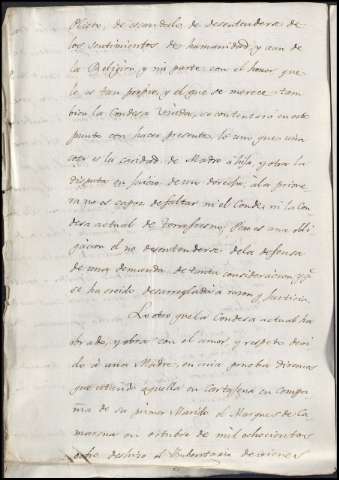 Pleito, de escandalo, de desentenderse de
los sentimientos de humanidad, y aun de
la Religion, y mi parte con el honor que
le es tan propio, y el que se merece tam
bien la Condesa Viuda, se contentará en este
punto con hacer presente, lo uno que una
cosa es la caridad de Madre á hija, y otra la
disputa en juicio de un derecho, á la prime
ra no es capaz de faltar ni el Conde, ni la Con
desa actual de Torrefresno; Pero es una obli
gacion el no desentenderse de la defensa
de una demanda de tanta consideracion, y q.e
se ha creido desarreglada á razon y Justicia.
Lo otro que la Condesa actual ha
obrado, y obra con el amor, y respeto devi
do á una Madre, en cuia prueba diremos
que viviendo aquella en Cartagena en compa
ñia de su primer Marido el Marques de Ca
marena en octubre de mil ochocientos
ocho deshizo el Inventario de vienes